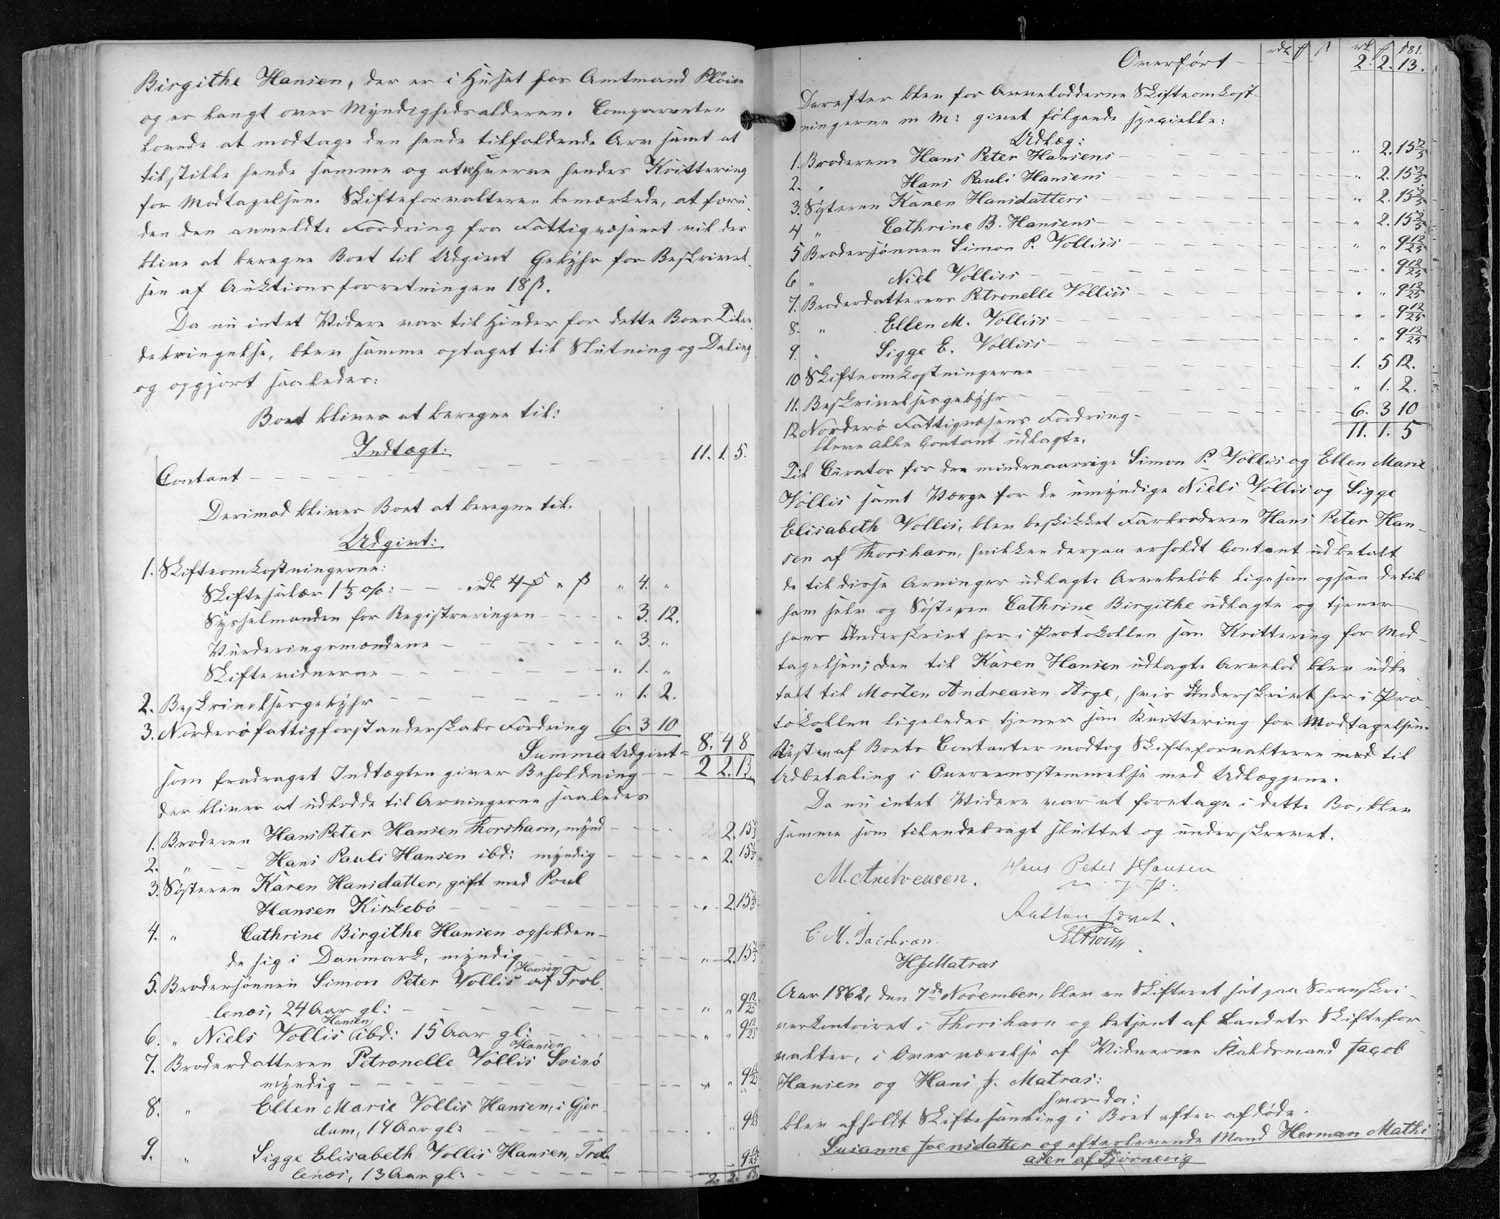 Birgithe Hansen, der er i Huset for Amtmand Pløien
og er langt over Myndighedsalderen. Comparenten
lovede at modtage den hende tilfaldende Arv samt at
tilstille hende samme og at hverve hendes Kvittering
for Modtagelsen. Skifteforvalteren bemærkede, at foru-
den den anmeldte Fordring fra Fattigvæsenet vil der
blive at beregne Boet til Udgivt Gebyhr for Beskrivel-
sen af Auktionsforretningen 18 ß.
Da nu intet Videre var til Hinder for dette Boes Tilen-
debringelse, blev samme optaget til Slutning og Deling
og opgjort saaledes:
Boet bliver at beregne til:
Indtægt:
Contant 11. 1. 5.
Derimod bliver Boet at beregne til.
Udgivt:
1. Skifteomkostningerne:
Skiftesalær 1⅓ %: " 4. "
Sysselmanden for Registreringen " 3. 12.
Vurderingsmændene " 3. "
Skiftevidnerne " 1. "
2. Beskrivelsesgebyhr " 1. 2.
3. Norderø Fattigforstanderskabs Fordring 6. 3 10
Summa Udgivt = 8. 4 8
som fradraget Indtægten giver Beholdning 2 2. 13.
der bliver at udlodde til Arvingerne saaledes
1. Broderen Hans Peter Hansen Thorshavn, mynd
2. " Hans Pauli Hansen ibd: myndig
3. Søsteren Karen Hansdatter, gift med Poul
Hansen Kirkebø
4. " Cathrine Birgithe Hansen opholden-
de sig i Danmark, myndig
5. Brodersønnen Simon Peter Vollis Hansen af Trol-
lenæs, 24 Aar gl:
6. " Niels Vollis Hansen ibd: 15 Aar gl:
7. Broderdatteren Petronelle Vollis Hansen Svinø
myndig
8. " Ellen Marie Vollis Hansen, i Gjer-
dum, 19 Aar gl:
9. " Sigge Elisabeth Vollis Hansen, Trol-
lenæs, 13 Aar gl:
181.
Overført 2. 2. 13.
Derefter blev for Arvelodderne Skifteomkost-
ningerne m M: givet følgende specielle:
Udlæg:
1. Broderen Hans Peter Hansens
2. " Hans Pauli Hansens
3. Søsteren Karen Hansdatters
4 " Cathrine B. Hansens
5 Brodersønnen Simon P. Vollis's
6 " Niels Vollis's
7. Broderdatterens Petronelle Vollis's
8. " Ellen M. Vollis's
9. " Sigge E. Vollis's
10 Skifteomkostningerne 1. 5 12.
11. Beskrivelsesgebyhr " 1. 2.
12 Norderø Fattigvæsens Fordring 6. 3 10
bleve alle Contant udlagte. 11. 1. 5
Til Curator for den mindreaarige Simon P. Vollis og Ellen Marie
Vollis samt Værge for de umyndige Niels Vollis og Sigge
Elisabeth Vollis, blev beskikket Farbroderen Hans Peter Han-
sen af Thorshavn, hvilken derpaa erholdt Contant udbetalt
de til disse Arvinger udlagte Arvebeløb ligesom ogsaa de til
ham selv og Søsteren Cathrine Birgithe udlagte og tjener
hans Underskrivt her i Protokollen som Kvittering for Mod-
tagelsen; den til Karen Hansen udlagte Arvelod blev udbe-
talt til Morten Andreasen Arge, hvis Underskrivt her i Pro-
tokollen ligeledes tjener som Kvittering for Modtagelsen.
Resten af Boets Contanter modtog Skifteforvalteren med til
Udbetaling i Overeensstemmelse med Udlæggene.
Da nu intet Videre var at foretage i dette Bo, blev
samme som tilendebragt sluttet og underskrevet.
M. Andreasen. Hans Peter Hansen
m. f. P.
C M. Jacobsen.
HJMatras
Aar 1862, den 7de November, blev en Skifteret sat paa Sorenskri-
verkontoiret i Thorshavn og betjent af Landets Skiftefor-
valter, i Overværelse af Vidnerne Kaldsmand Jacob
Hansen og Hans J. Matras:
hvorda:
blev afholdt Skiftesamling i Boet efter afdøde
Susanne Joensdatter og efterlevende Mand Herman Mathi-
asen af Tjørnevig